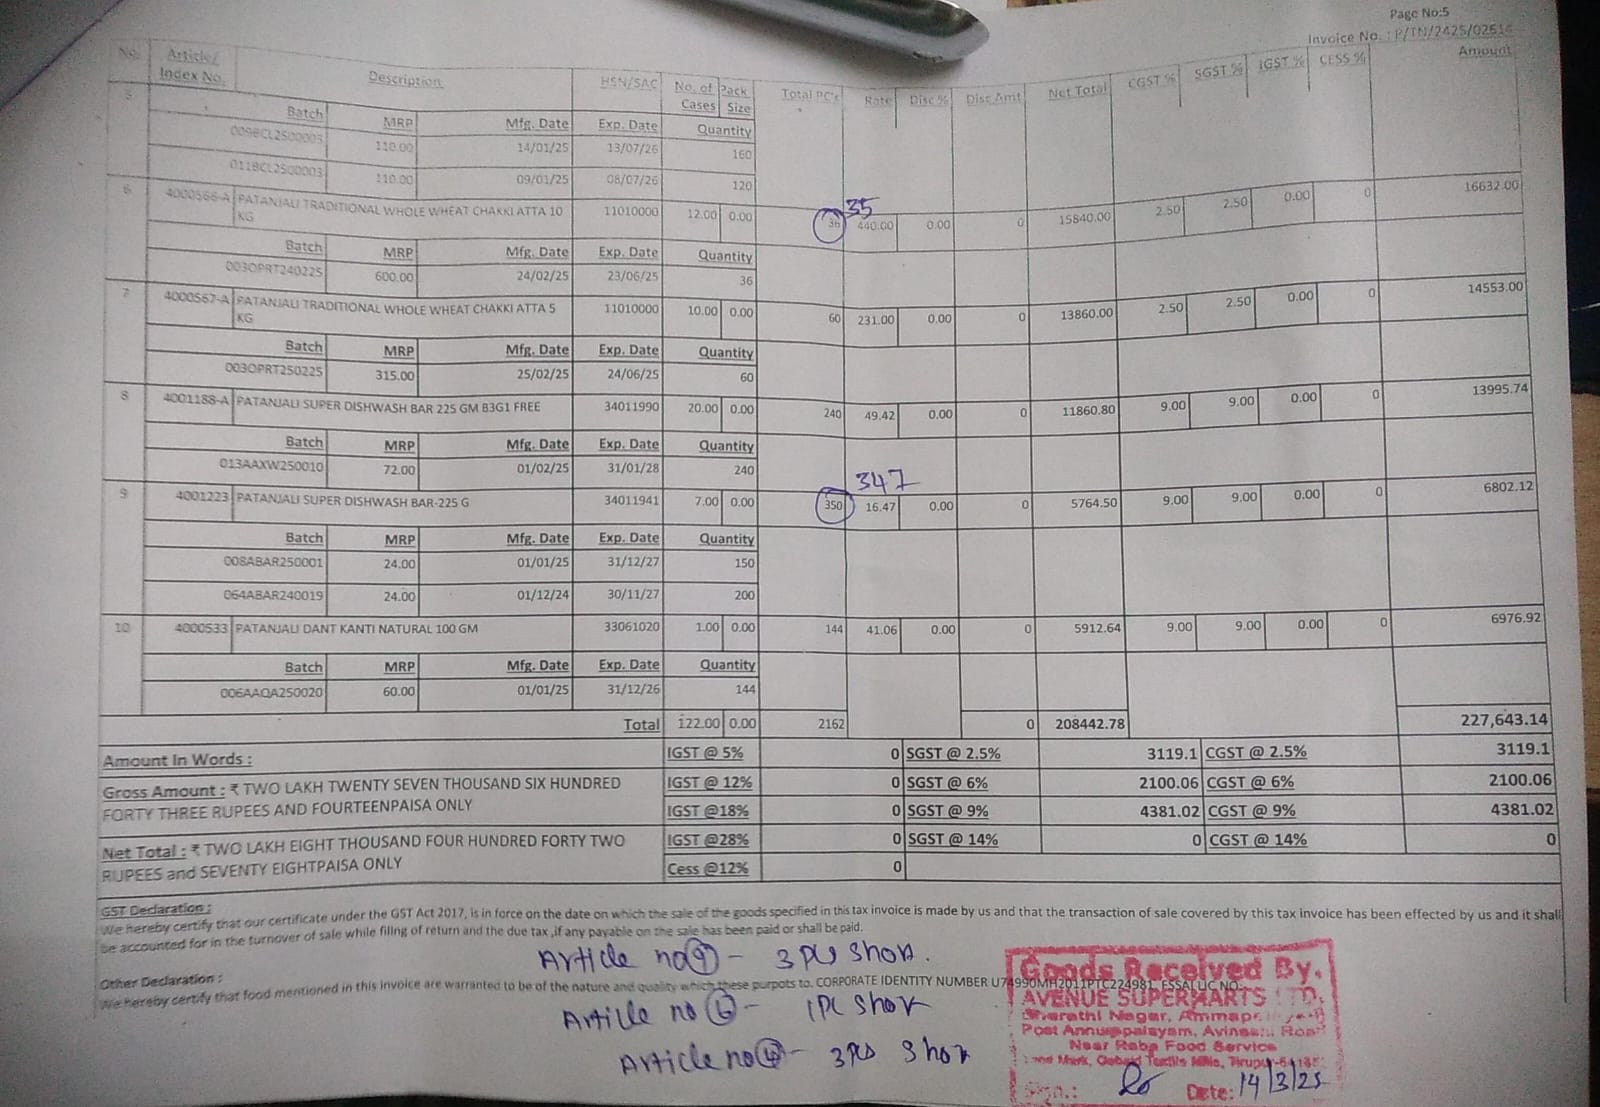 Page No:5
Invoice No. : P/TN/2425/02614
No. Article/ Index No. Description HSN/SAC No. of Cases Pack Size Total PC's Rate Disc % Disc Amt Net Total CGST % SGST % IGST % CESS % Amount
5 Batch MRP Mfg. Date Exp. Date Quantity
009BCL2500003 110.00 14/01/25 13/07/26 160
011BCL2500003 110.00 09/01/25 08/07/26 120
35
6 4000566-A PATANJALI TRADITIONAL WHOLE WHEAT CHAKKI ATTA 10 KG 11010000 12.00 0.00 36 440.00 0.00 0 15840.00 2.50 2.50 0.00 0 16632.00
Batch MRP Mfg. Date Exp. Date Quantity
003OPRT240225 600.00 24/02/25 23/06/25 36
7 4000567-A PATANJALI TRADITIONAL WHOLE WHEAT CHAKKI ATTA 5 KG 11010000 10.00 0.00 60 231.00 0.00 0 13860.00 2.50 2.50 0.00 0 14553.00
Batch MRP Mfg. Date Exp. Date Quantity
003OPRT250225 315.00 25/02/25 24/06/25 60
8 4001188-A PATANJALI SUPER DISHWASH BAR 225 GM B3G1 FREE 34011990 20.00 0.00 240 49.42 0.00 0 11860.80 9.00 9.00 0.00 0 13995.74
Batch MRP Mfg. Date Exp. Date Quantity
013AAXW250010 72.00 01/02/25 31/01/28 240
347
9 4001223 PATANJALI SUPER DISHWASH BAR-225 G 34011941 7.00 0.00 350 16.47 0.00 0 5764.50 9.00 9.00 0.00 0 6802.12
Batch MRP Mfg. Date Exp. Date Quantity
008ABAR250001 24.00 01/01/25 31/12/27 150
064ABAR240019 24.00 01/12/24 30/11/27 200
10 4000533 PATANJALI DANT KANTI NATURAL 100 GM 33061020 1.00 0.00 144 41.06 0.00 0 5912.64 9.00 9.00 0.00 0 6976.92
Batch MRP Mfg. Date Exp. Date Quantity
006AAQA250020 60.00 01/01/25 31/12/26 144
Total 122.00 0.00 2162 0 208442.78 227,643.14
Amount In Words : IGST @ 5% 0 SGST @ 2.5% 3119.1 CGST @ 2.5% 3119.1
Gross Amount : ₹ TWO LAKH TWENTY SEVEN THOUSAND SIX HUNDRED IGST @ 12% 0 SGST @ 6% 2100.06 CGST @ 6% 2100.06
FORTY THREE RUPEES AND FOURTEENPAISA ONLY IGST @18% 0 SGST @ 9% 4381.02 CGST @ 9% 4381.02
Net Total : ₹ TWO LAKH EIGHT THOUSAND FOUR HUNDRED FORTY TWO IGST @28% 0 SGST @ 14% 0 CGST @ 14% 0
RUPEES and SEVENTY EIGHTPAISA ONLY Cess @12% 0
GST Declaration :
We hereby certify that our certificate under the GST Act 2017, is in force on the date on which the sale of the goods specified in this tax invoice is made by us and that the transaction of sale covered by this tax invoice has been effected by us and it shall
be accounted for in the turnover of sale while filing of return and the due tax ,if any payable on the sale has been paid or shall be paid.
Article no 9 - 3 pcs short.
Other Declaration :
We hereby certify that food mentioned in this invoice are warranted to be of the nature and quality which these purpots to. CORPORATE IDENTITY NUMBER U74990MH2011PTC224981, FSSAI LIC NO.
Article no 6 - 1 pc short
Article no 4 - 3 pcs short
Goods Received By.
AVENUE SUPERMARTS LTD.
Bharathi Nagar,
Post Annuppalayam, Avinashi Road
Near Raba Food Service
Land Mark, Tirupur
Sign.: Date: 14/3/25